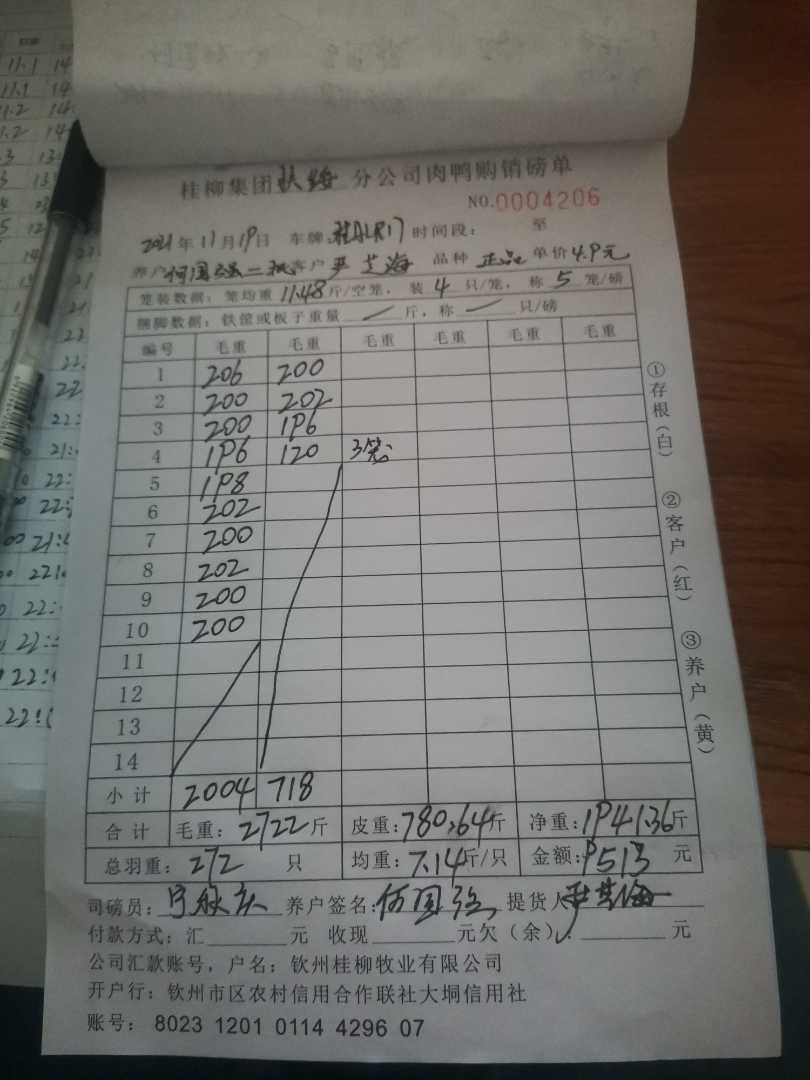 桂柳集团 钦海 分公司肉鸭购销磅单
NO.0004206
2021年11月19日 车牌: 时间段: 至
养户 何国强二批 客户 尹芝海 品种 正品 单价4.9元
笼装数据: 笼均重 11.48 斤/空笼, 装 4 只/笼, 称 5 笼/磅
捆脚数据: 铁筐或板子重量 / 斤, 称 / 只/磅
编号 毛重 毛重 毛重 毛重 毛重 毛重
1 206 200
2 200 202
3 200 196
4 196 120 3笼
5 198
6 202
7 200
8 202
9 200
10 200
11
12
13
14
小计 2004 718
合计 毛重: 2722斤 皮重: 780.64斤 净重: 1941.36斤
总羽重: 272 只 均重: 7.14斤/只 金额: 9513 元
司磅员: 养户签名: 何国强 提货人 尹芝海
付款方式: 汇 元 收现 元欠(余): 元
公司汇款账号, 户名: 钦州桂柳牧业有限公司
开户行: 钦州市区农村信用合作联社大垌信用社
账号: 8023 1201 0114 4296 07
①存根(白)
②客户(红)
③养户(黄)
11.1 14
11.1 14
11.2 14